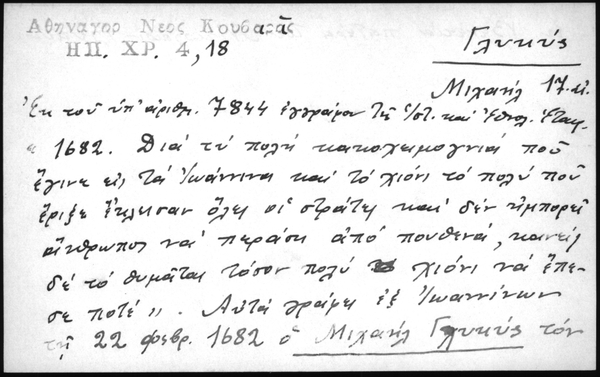 Αθηναγορ Νεος Κουβαρᾶς
ΗΠ. ΧΡ. 4, 18
Γλυκύς
Μιχαήλ 17. αἰ.
Ἐκ τοῦ ὑπ' ἀριθμ. 7844 ἐγγράφου τῆς Ἱστ. καὶ Ἐθνολ. Ἑταιρ.
« 1682. Διά τύ πολή κακοχειμογνιά ποῦ
ἔγινε εἰς τά Ἰωάννινα καί τό χιόνι τό πολύ ποῦ
ἔριξε ἔκλεισαν ὅλες οἱ στράτες καί δέν ἠμπορεῖ
ἄνθρωπος νά περάση ἀπό πουθενά, κανείς
δέ τό θυμᾶται τόσον πολύ χιόνι νά ἔπε-
σε ποτέ». Αὐτά γράφει ἐξ Ἰωαννίνων
τῇ 22 φεβρ. 1682 ὁ Μιχαήλ Γλυκύς τόν